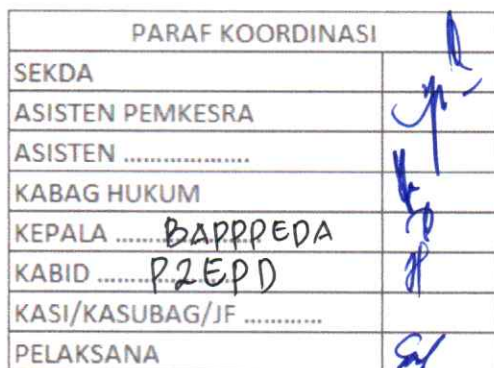 PARAF KOORDINASI
SEKDA
ASISTEN PEMKESRA
ASISTEN ..................
KABAG HUKUM
KEPALA ....... BAPPPEDA
KABID ........ P2EPD
KASI/KASUBAG/JF ............
PELAKSANA